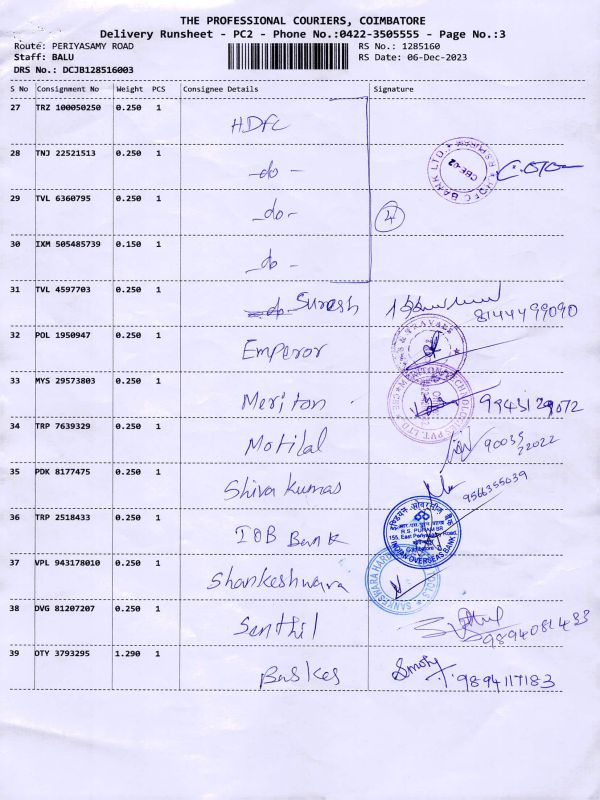 THE PROFESSIONAL COURIERS, COIMBATORE
Delivery Runsheet - PC2 - Phone No.:0422-3505555 - Page No.:3
Route: PERIYASAMY ROAD RS No.: 1285160
Staff: BALU RS Date: 06-Dec-2023
DRS No.: DCJB128516003
S No Consignment No Weight PCS Consignee Details Signature
27 TRZ 100050250 0.250 1 HDFC
28 TNJ 22521513 0.250 1 -do-
HDFC BANK LTD.
CBE-02
29 TVL 6360795 0.250 1 -do-
4
30 IXM 505485739 0.150 1 -do-
31 TVL 4597703 0.250 1 Suresh 8144499090
32 POL 1950947 0.250 1 Emperor
33 MYS 29573803 0.250 1 Meriton
34 TRP 7639329 0.250 1 Motilal 90035 22022
35 PDK 8177475 0.250 1 Shiva Kumar 9566355039
36 TRP 2518433 0.250 1 IOB Bank
इण्डियन ओवरसीज़ बैंक
R.S. PURAM BR
155, East Periyasamy Road,
Coimbatore
INDIAN OVERSEAS BANK
37 VPL 943178010 0.250 1 Shankeshwara
38 DVG 81207207 0.250 1 Senthil 9894081483
39 OTY 3793295 1.290 1 Baskes 9894117183